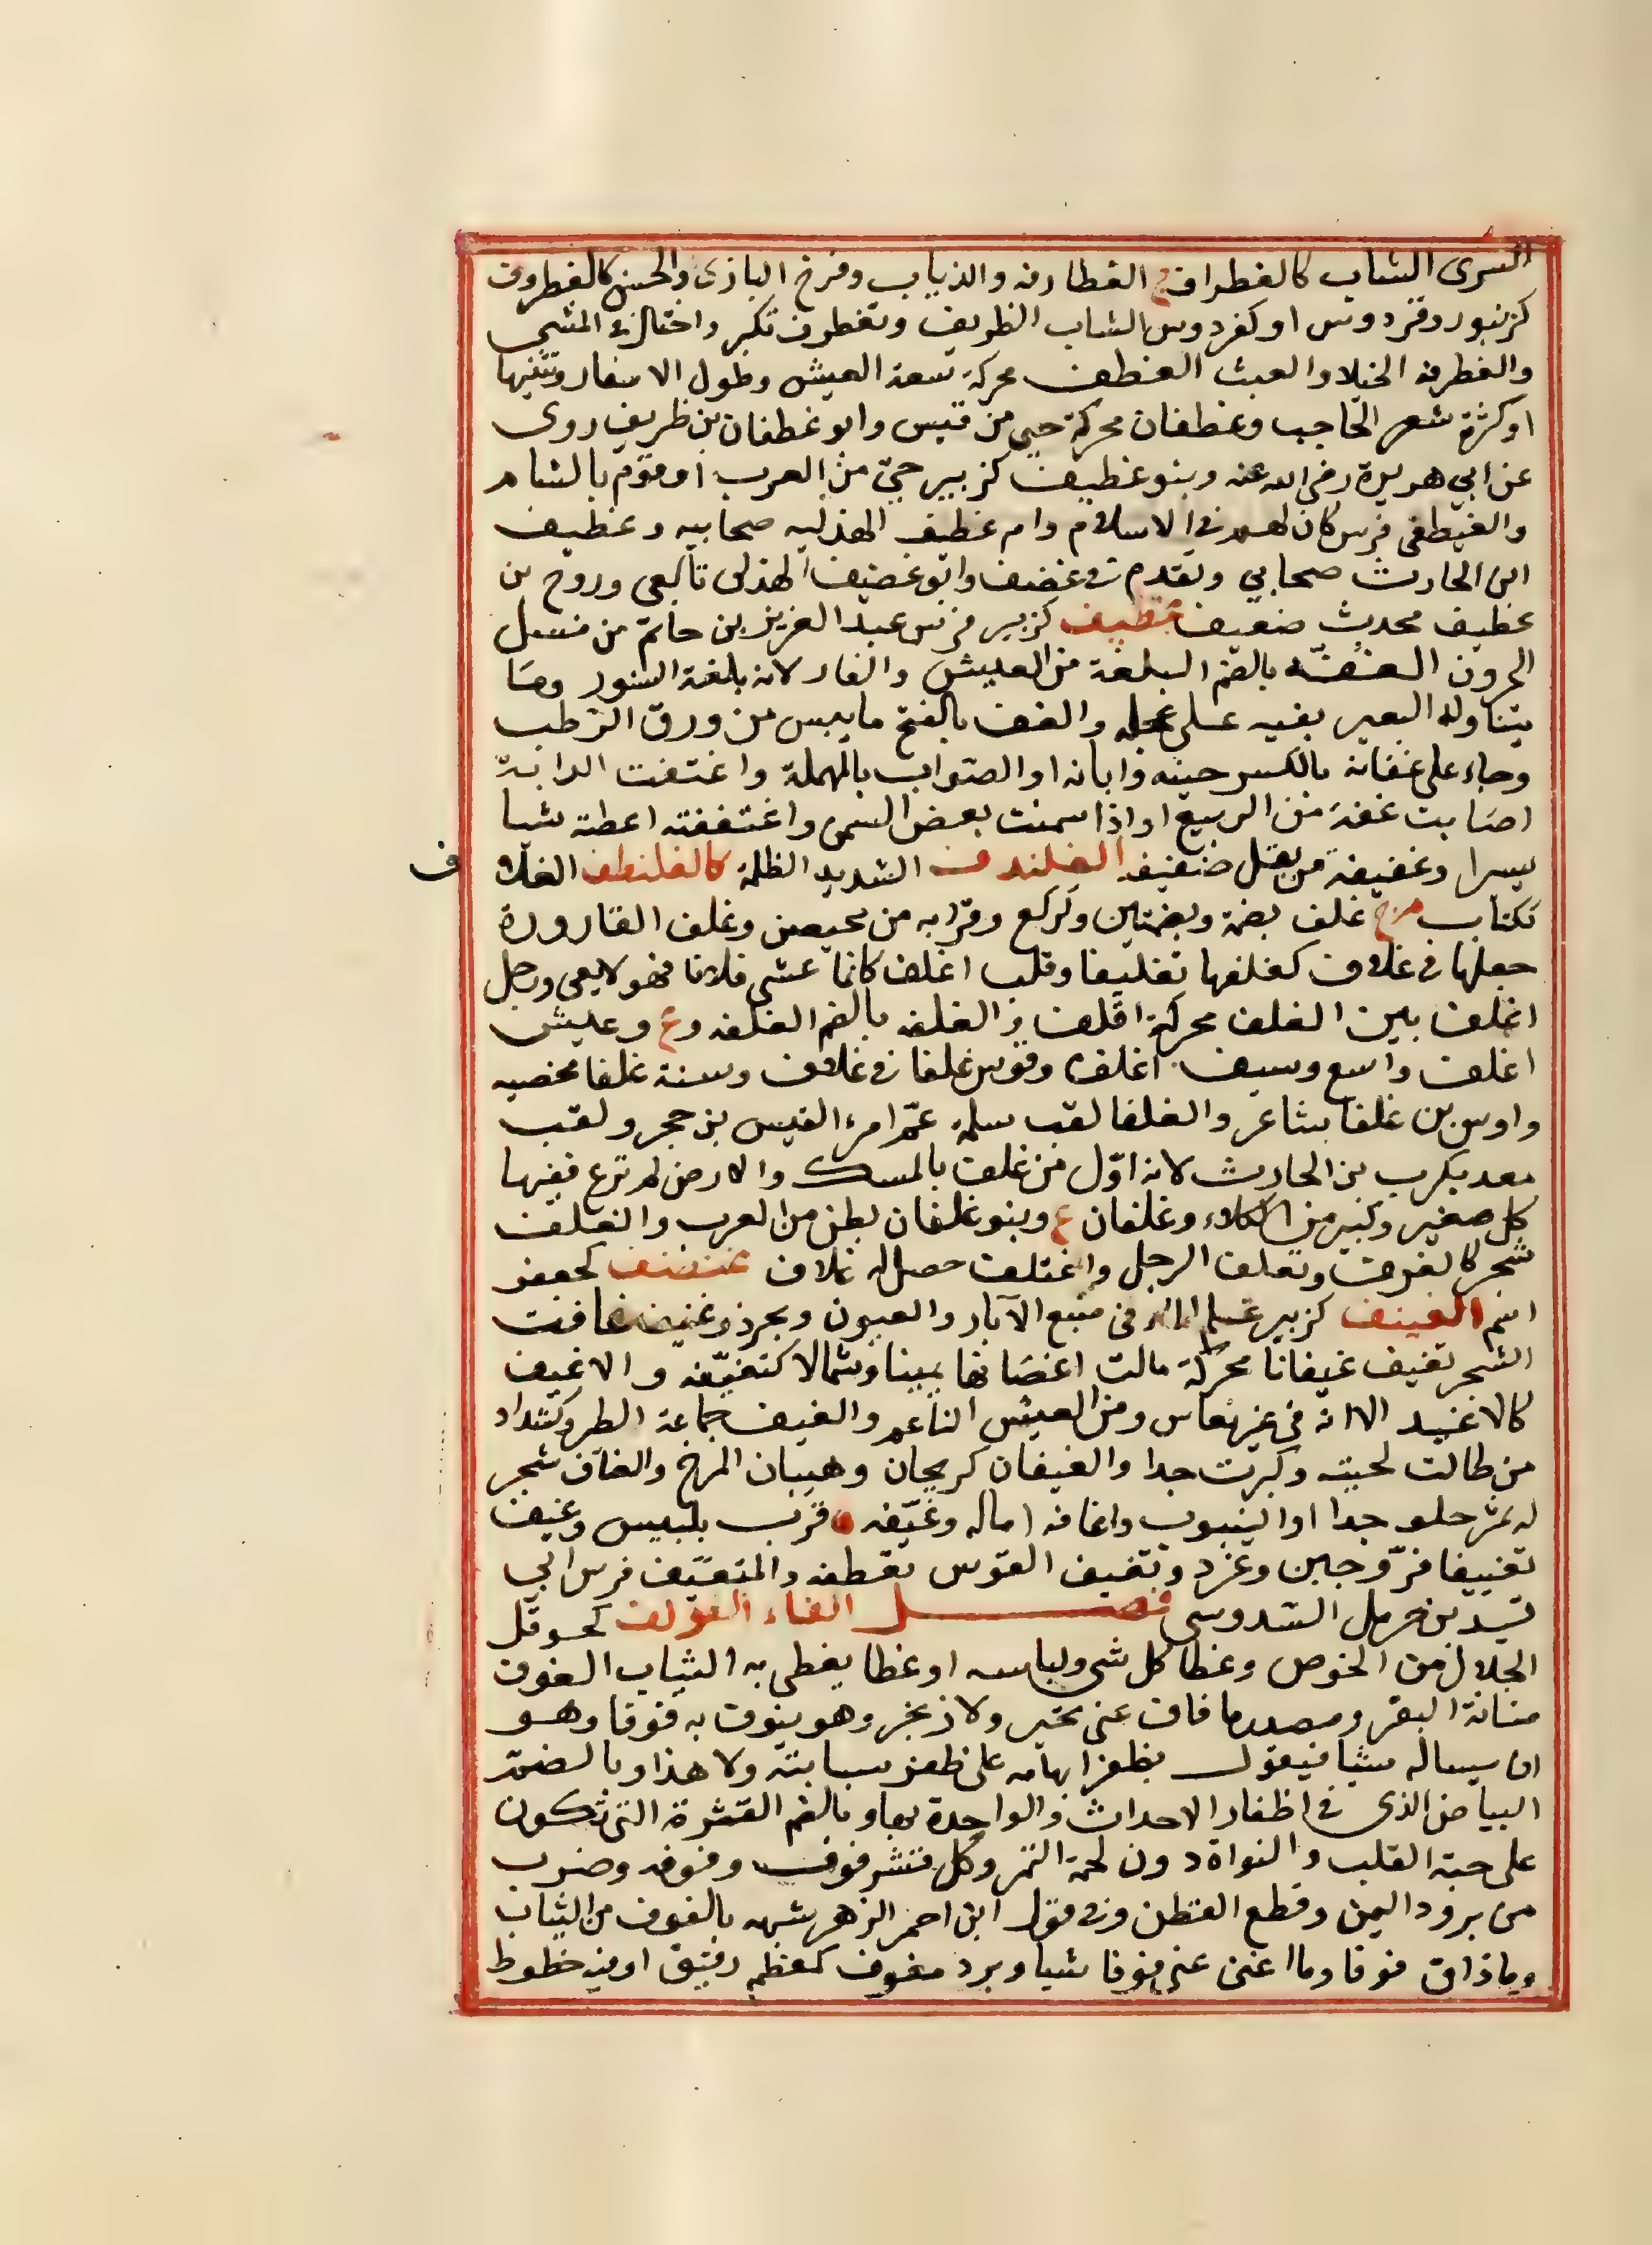 السرى الشاب كالغطراف ج الغطارفه والذباب وفرخ البازى والحسن كالغطروف
كزنبور وفردوس او كفردوس الشاب الظريف وتغطرف تكبر واختال فى المشى
والغطرفه الخيلا والعبث الغطف محركة سعة العيش وطول الاشفار وتثنيها
او كثرة شعر الحاجب وغطفان محركة حي من قيس وابو غطفان بن ظريف روى
عن ابي هريرة رضى الله عنه وبنو غطيف كزبير حيّ من العرب او قوم بالشام
والغيطفى فرس كان لهم فى الاسلام وام غطيف الهذليه صحابيه وغطيف
ابن الحارث صحابي وتقدم فى غضف وابو غضيف الهذلى تابعى وروح بن
غطيف محدث ضعيف غظيف كزبير فرس عبد العزيز بن حاتم من نسل
الحرون الغفّه بالضم البلغة من العيش والفار لانه بلغة السنور وما
يتناوله البعير بفيه على عجله والغف بالفتح ما يبس من ورق الرطب
وجاء على غفانه بالكسر حينه وابانه او الصواب بالمهملة واغتفت الدابة
اصابت غفة من الربيع او اذا سمنت بعض السمن واغتففته اعطته شيا
يسيرا وغفيفة من بقل ضغيفه الغلندف الشديد الظلمة كالغلنطف الغلاف
ككتاب م ج غلف بضمة وبضمتين وكركع وقرا به من محيصن وغلف القارورة
جعلها فى غلاف كغلفها تغليفا وقلب اغلف كانما غشى غلافا فهو لا يعى ورجل
اغلف بين الغلف محركة اقلف والغلفه بالضم الغلفه وع وعيش
اغلف واسع وسيف اغلف وقوس غلفا فى غلاف وسنة غلفا مخصبه
واوس بن غلفا شاعر والغلفا لقب سلمة عمّ امرء القيس بن حجر ولقب
معد يكرب بن الحارث لانه اوّل من غلف بالمسك والارض لم ترع ففيها
كل صغير وكبير من الكلاء وغلفان ع وبنو غلفان بطن من العرب والغلف
شجر كالغرف وتغلف الرجل واغتلف حصل له غلاف غنضف كجعفر
اسم الغينف كزبير غيلم الماء فى منبع الآبار والعيون وبحر ذو غينف غافت
الشجر تغيف غيفانا محركة مالت اغصانها يمينا وشمالا كتغيّفه والاغيف
كالاغيد الا انه فى غير نعاس ومن العيش الناعم والغيف جماعة الطير وكشداد
من طالت لحيته وكبرت جدا والغيفان كريحان وهيبان المرخ والغاف شجر
له ثمر حلو جدا او الينبوت واغافه اماله وغيّفه ه قرب بلبيس وغيف
تغييفا فرّ وجبن وعرد وتغيف القوس تقطفه والمتغيّف فرس ابي
فيد بن حرمل السدوسى فصل الفاء الفولف كحوقل
الجلال من الخوص وغطا كل شى ولباسه او غطا يغطى به الثياب الفوف
مثانة البقر ومصدر ما فاف عنى بخير ولا زنجر وهو يفوف به فوفا وهو
ان يساله شيا فيقول بظفر ابهامه على ظفر سبابته ولا هذا وبالضم
البياض الذى فى اظفار الاحداث والواحدة بهاء وبالضم القشرة التى تكون
على حبة القلب والنواة دون لحمة التمر وكل قشر فوف وفوفه وضرب
من برود اليمن وقطع القطن وفى قول ابن احمر الزهر شبهه بالفوف من الثياب
وما ذاق فوفا وما اغنى عنى فوفا شيا وبرد مفوف كمعظم رقيق او فيه خطوط